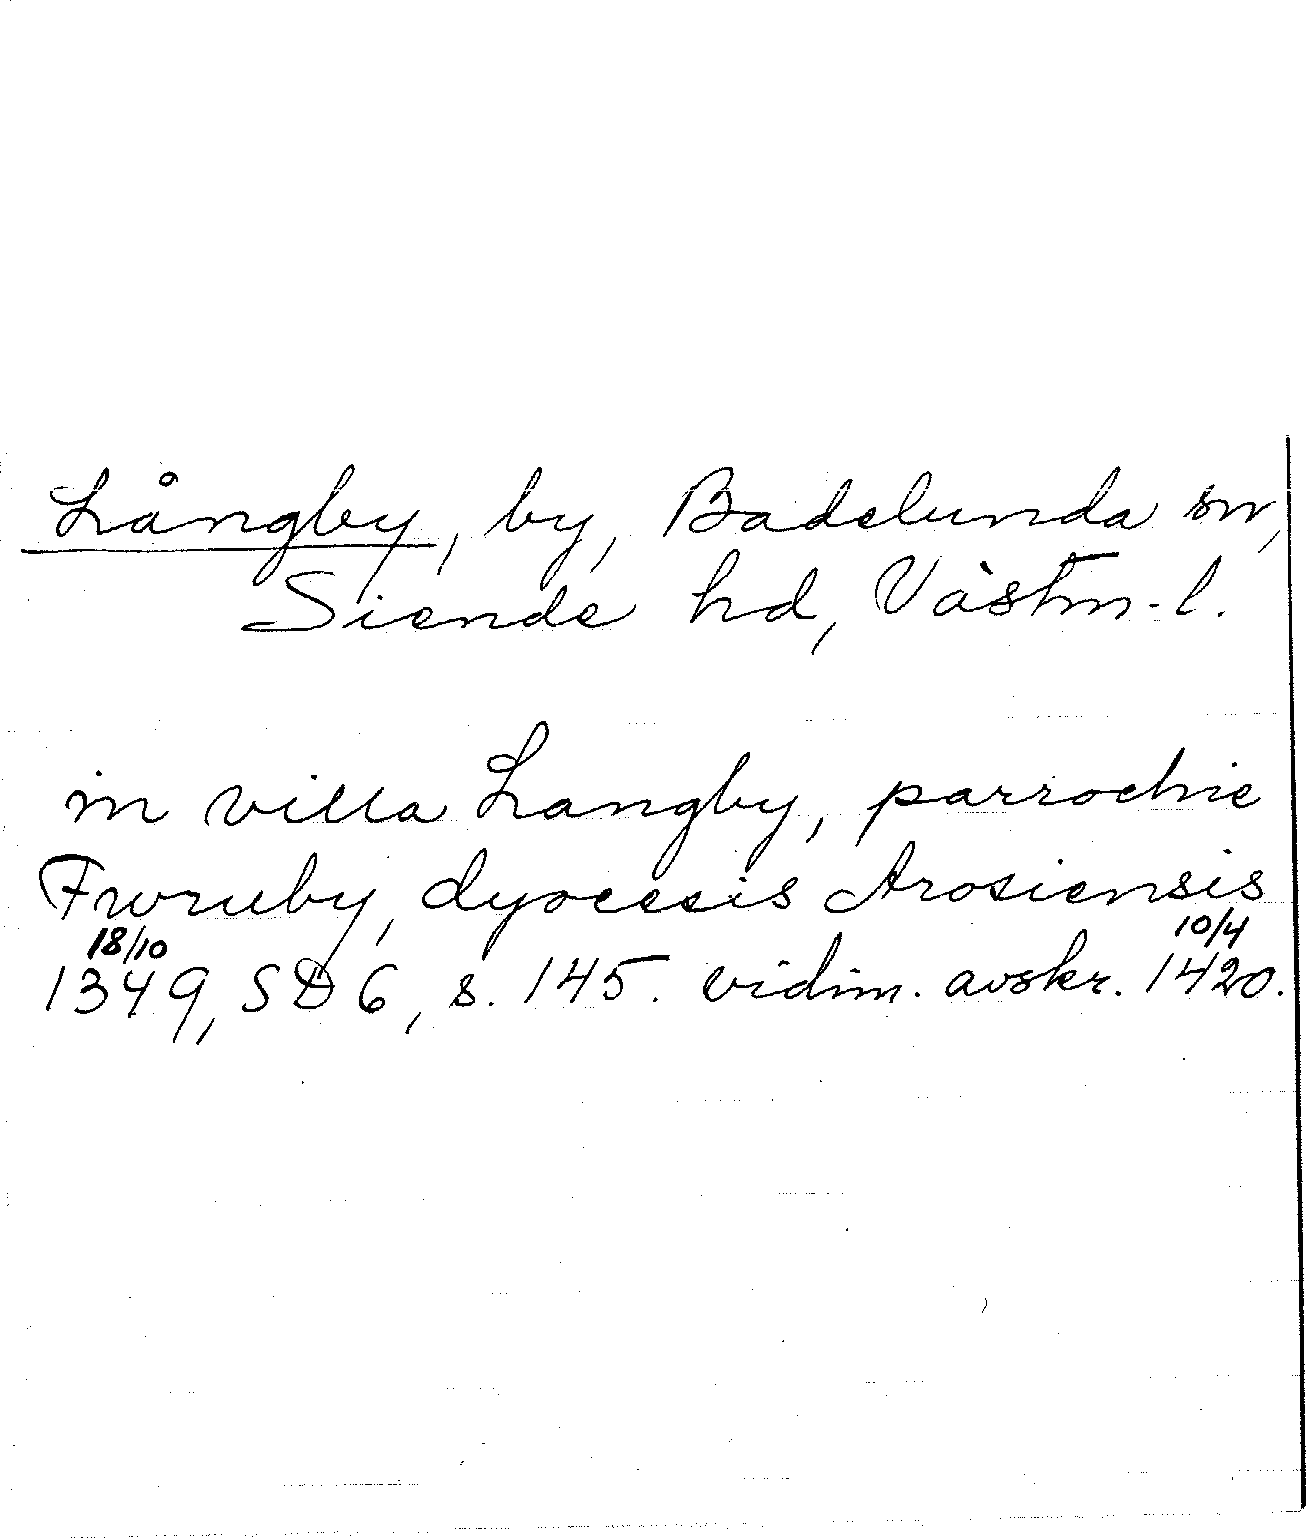 Långby, by, Badelunda sn,
Siende hd, Västm. l.
in villa Langby, parrochie
Fwruby, dyocesis Arosiensis
18/10 10/4
1349, SD 6, s. 145. vidim. avskr. 1420.